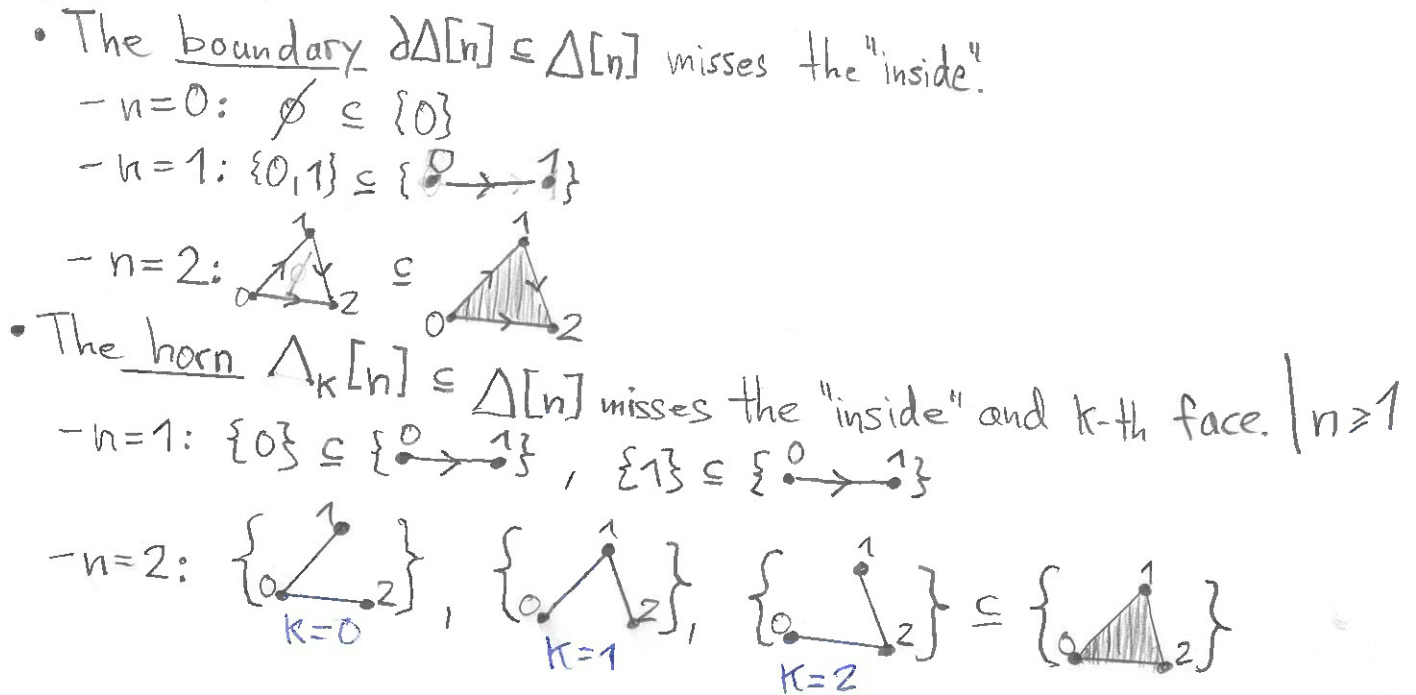 • The boundary ∂Δ[n] ⊆ Δ[n] misses the "inside".
- n=0: ∅ ⊆ {0}
- n=1: {0,1} ⊆ {0 1}
- n=2: 0 1 2 ⊆ 0 1 2
• The horn Λₖ[n] ⊆ Δ[n] misses the "inside" and k-th face. | n⩾1
- n=1: {0} ⊆ {0 1}, {1} ⊆ {0 1}
- n=2: {0 1 2}, {0 1 2}, {0 1 2} ⊆ {0 1 2}
k=0 k=1 k=2